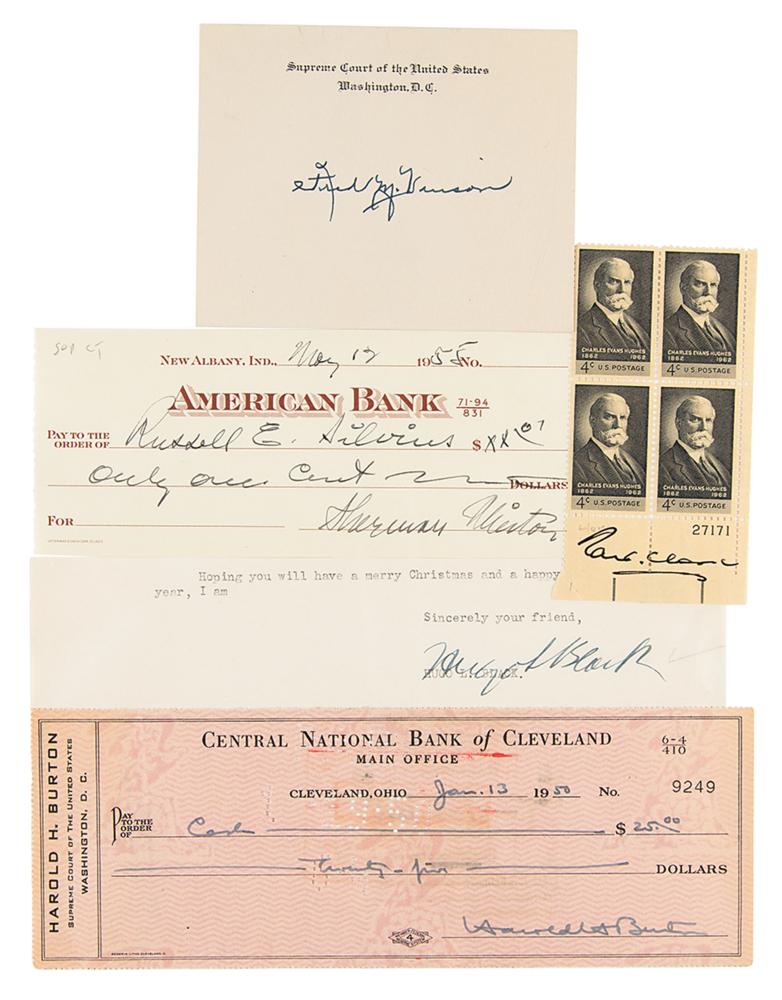 Supreme Court of the United States
Washington, D.C.
Fred M. Vinson
CHARLES EVANS HUGHES
1862 1962
4c U.S. POSTAGE
CHARLES EVANS HUGHES
1862 1962
4c U.S. POSTAGE
CHARLES EVANS HUGHES
1862 1962
4c U.S. POSTAGE
CHARLES EVANS HUGHES
1862 1962
4c U.S. POSTAGE
27171
Tom C. Clark
Sup Ct
NEW ALBANY, IND., May 12 1955 No.
AMERICAN BANK 71-94 831
PAY TO THE ORDER OF Russell E. Silvius $ xx 01
only one cent DOLLARS
FOR Sherman Minton
Hoping you will have a merry Christmas and a happy
year, I am
Sincerely your friend,
Hugo L Black
HUGO L. BLACK.
HAROLD H. BURTON
SUPREME COURT OF THE UNITED STATES
WASHINGTON, D. C.
CENTRAL NATIONAL BANK of CLEVELAND 6-4 410
MAIN OFFICE
CLEVELAND, OHIO Jan. 13 1950 No. 9249
PAY TO THE ORDER OF Cash $ 25.00
twenty-five DOLLARS
Harold H Burton